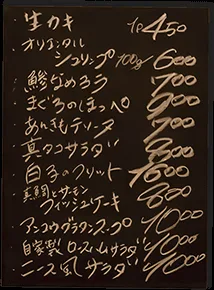 ・生カキ 1P 450
・オリエンタル
シュリンプ 100g 600
・鯵なめろう 700
・まぐろのほっぺ 900
・あんきもテリーヌ 700
・真タコサラダ 800
・白子のフリット 1600
・真鯛とサーモン
フィッシュケーキ 800
・アンコウグラタンスープ 1000
・自家製 ロースハムサラダ 1000
・ニース風サラダ 1000